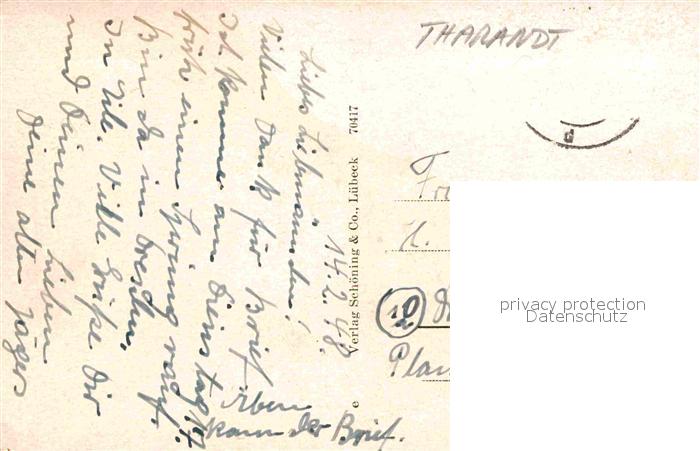 THARANDT
14.2.48
Liebes Liebmännden!
Vielen Dank für Brief
Ich komme am Dienstag 17.
früh einen Sprung rauf.
Bin da in Dresden.
In Eile. Viele Grüße Dir
und Deinen Lieben
Deine alten Jägers
Eben
kam der Brief.
e Verlag Schöning & Co., Lübeck 70417
Fr
H.
10
Plau
privacy protection
Datenschutz